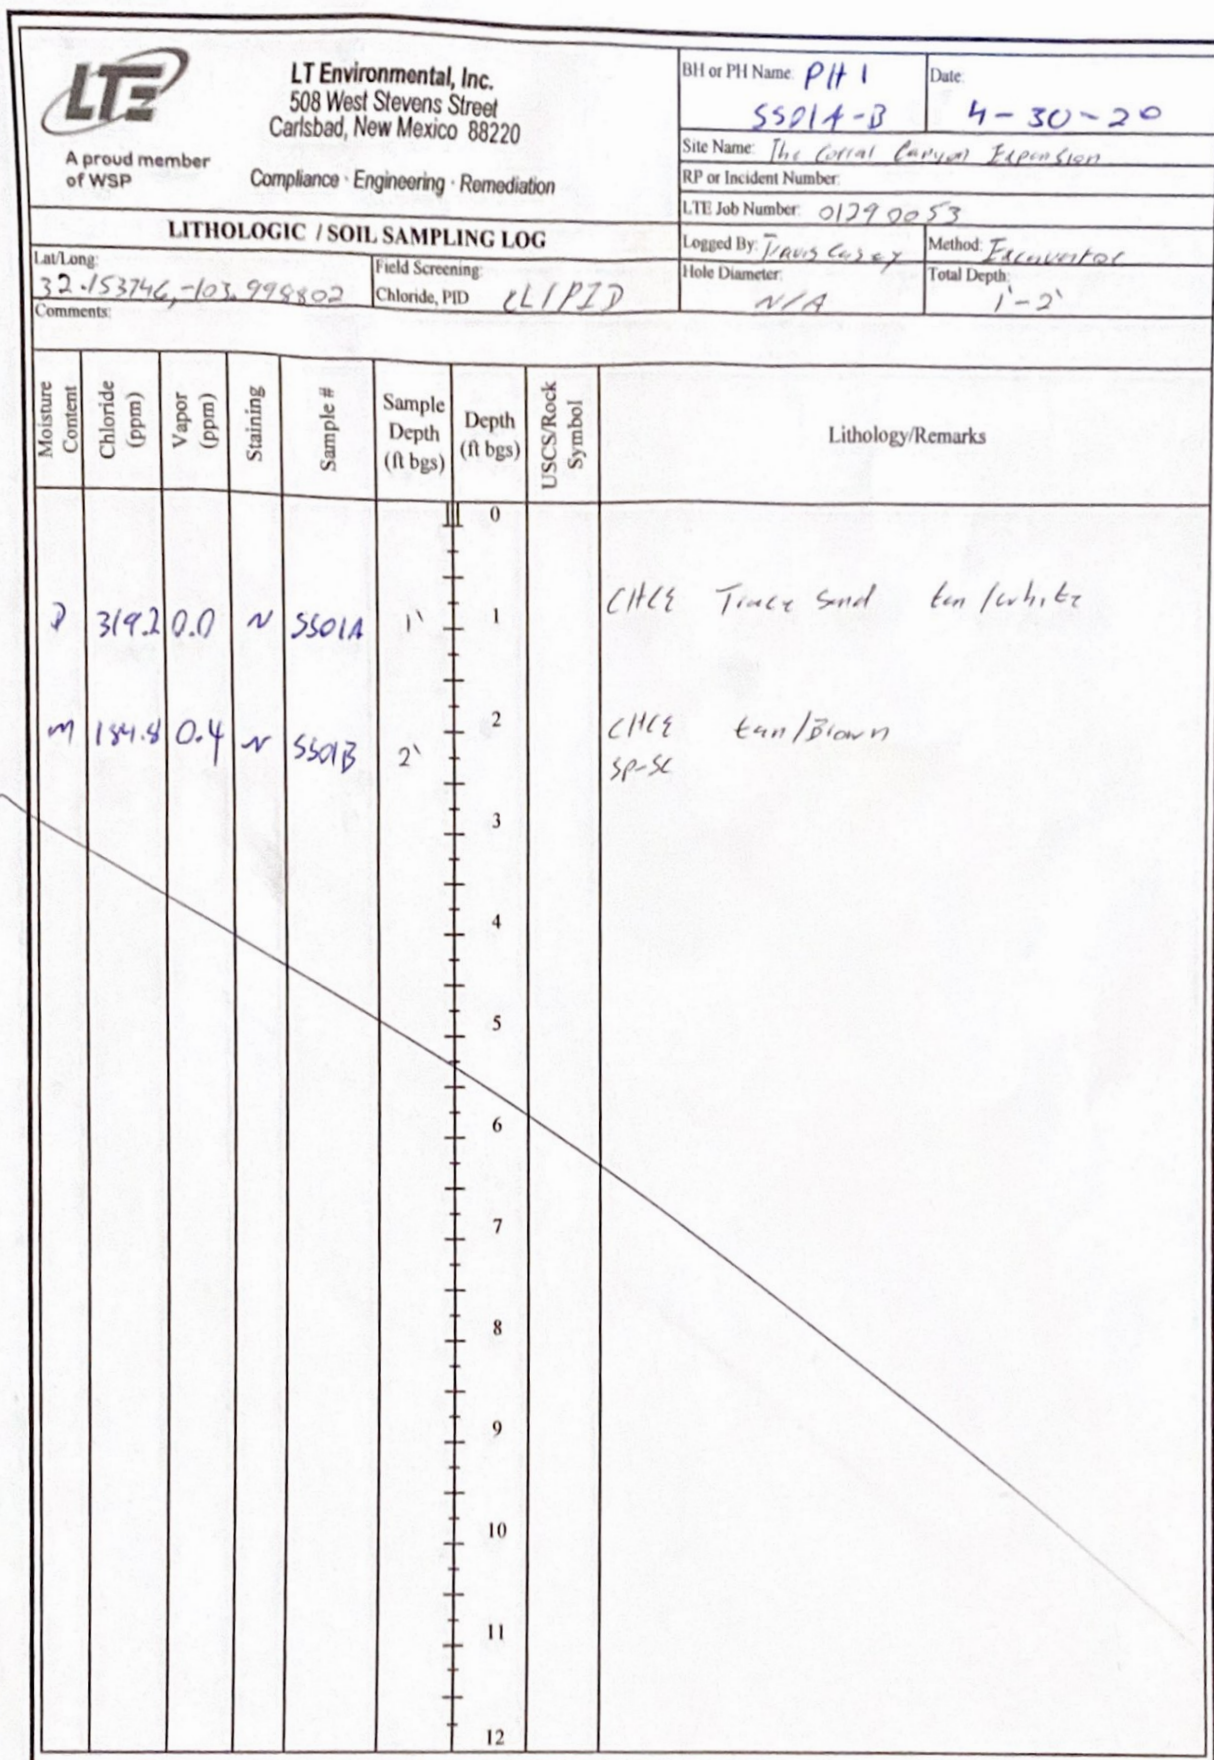 LTE
A proud member
of WSP
LT Environmental, Inc.
508 West Stevens Street
Carlsbad, New Mexico 88220
Compliance · Engineering · Remediation
BH or PH Name: PH 1
SS01A-B
Date:
4-30-20
Site Name: The Corral Canyon Expansion
RP or Incident Number:
LTE Job Number: 01290053
LITHOLOGIC / SOIL SAMPLING LOG
Logged By: Travis Casey
Method: Excavator
Lat/Long:
32.153746,-103.998802
Field Screening:
Chloride, PID CL/PID
Hole Diameter:
N/A
Total Depth:
1'-2'
Comments:
Moisture Content
Chloride (ppm)
Vapor (ppm)
Staining
Sample #
Sample Depth (ft bgs)
Depth (ft bgs)
USCS/Rock Symbol
Lithology/Remarks
0
D 319.2 0.0 N SS01A 1' 1 CHCE Trace Sand tan/white
M 184.8 0.4 N SS01B 2' 2 CHCE tan/Brown
SP-SC
3
4
5
6
7
8
9
10
11
12